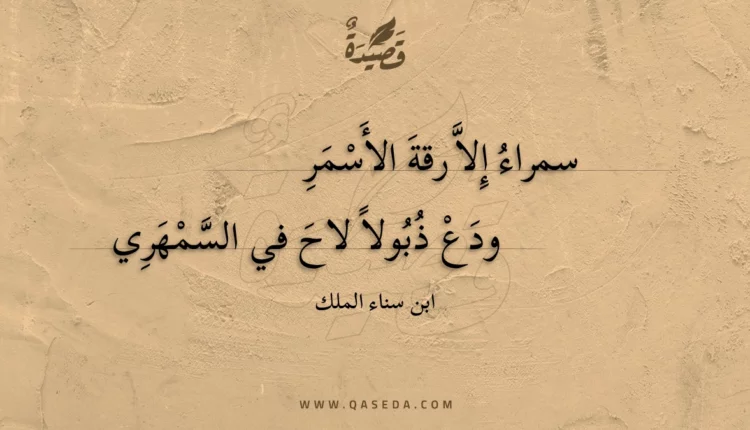 قَصِيْدَةٌ
سمراءُ إِلاَّ رقةَ الأَسْمَرِ
ودَعْ ذُبُولاً لاحَ في السَّمْهَرِي
ابن سناء الملك
WWW.QASEDA.COM